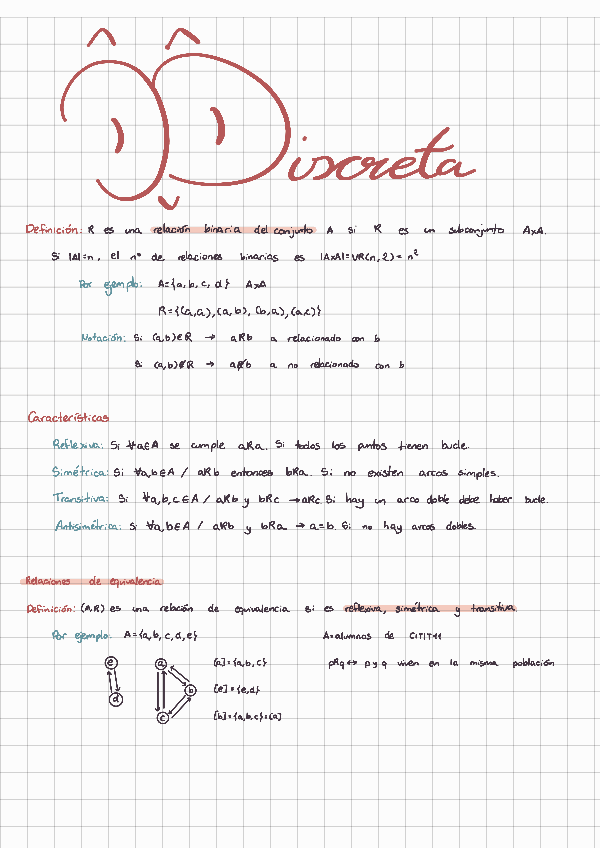 Discreta
Definición: R es una relación binaria del conjunto A si R es un subconjunto AxA.
Si |A|=n, el nº de relaciones binarias es |AxA|=VR(n,2)= n²
Por ejemplo: A={a,b,c,d} AxA
R={(a,a),(a,b),(b,a),(a,c)}
Notación: Si (a,b)∈R → aRb a relacionado con b
Si (a,b)∉R → aR̸b a no relacionado con b
Características
Reflexiva: Si ∀a∈A se cumple aRa. Si todos los puntos tienen bucle.
Simétrica: Si ∀a,b∈A / aRb entonces bRa. Si no existen arcos simples.
Transitiva: Si ∀a,b,c∈A / aRb y bRc →aRc. Si hay un arco doble debe haber bucle.
Antisimétrica: Si ∀a,b∈A / aRb y bRa → a=b. Si no hay arcos dobles.
Relaciones de equivalencia
Definición: (A,R) es una relación de equivalencia si es reflexiva, simétrica y transitiva.
Por ejemplo: A={a,b,c,d,e} A=alumnos de
e a [a]={a,b,c} pRq↔ p y q viven en la misma población
d b [e]={e,d}
c [b]={a,b,c}=[a]